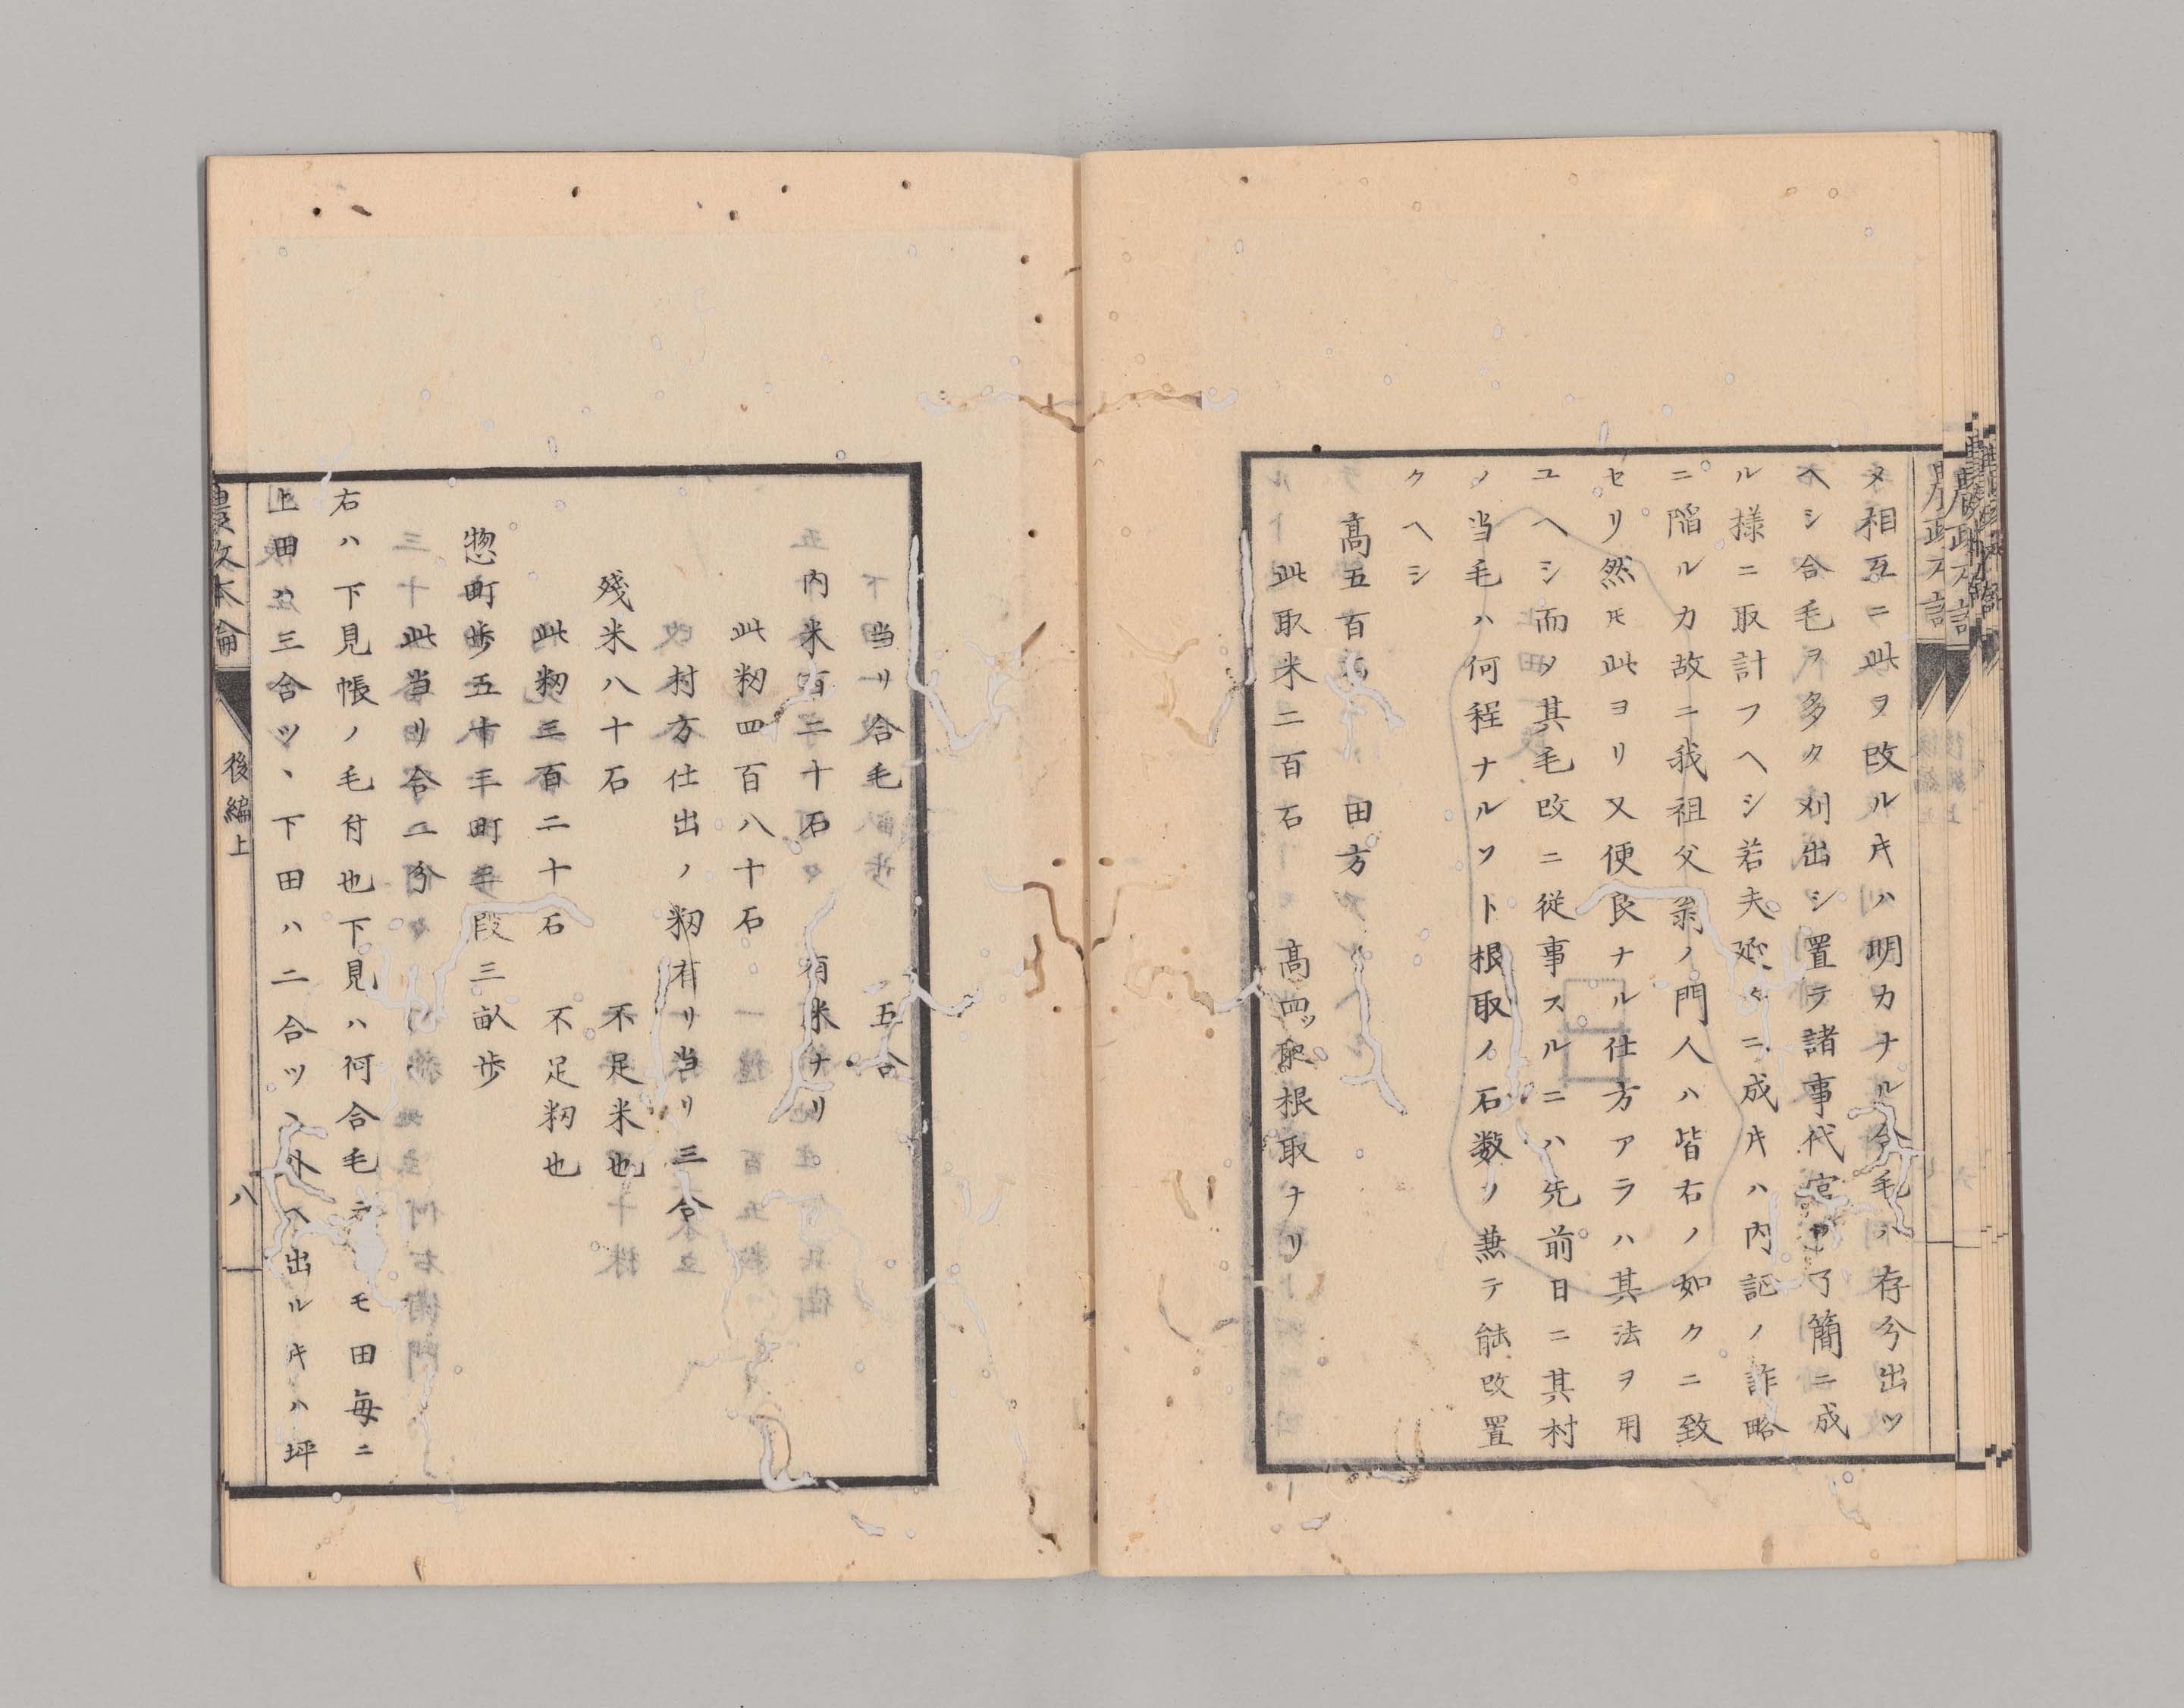 タ相互ニ此ヲ改ルキハ明カナル合毛ハ存分出ツ
ヘシ合毛ヲ多ク刈出シ置テ諸事代官ノ了簡ニ成
ル様ニ取計フヘシ若夫逐々ニ成キハ内記ノ詐略
ニ陥ルカ故ニ我祖父翁ノ門人ハ皆右ノ如クニ致
セリ然モ此ヨリ又便良ナル仕方アラハ其法ヲ用
ユヘシ而メ其毛改ニ従事スルニハ先前日ニ其村
ノ当毛ハ何程ナルソト根取ノ石数ヲ兼テ能改置
クヘシ
高五百石 田方
此取米二百石 高四ツ取根取ナリ
当リ合毛 五合
内米百二十石 有米ナリ
此籾四百八十石
村方仕出ノ籾有リ当リ三合
残米八十石 不足米也
此籾三百二十石 不足籾也
惣町歩五十三町三段三畝歩
此当リ合二分
右ハ下見帳ノ毛付也下見ハ何合毛ニモ田毎ニ
上田三合ツヽ下田ハ二合ツヽ外ヘ出ルキハ坪
農政本論 後編上 八